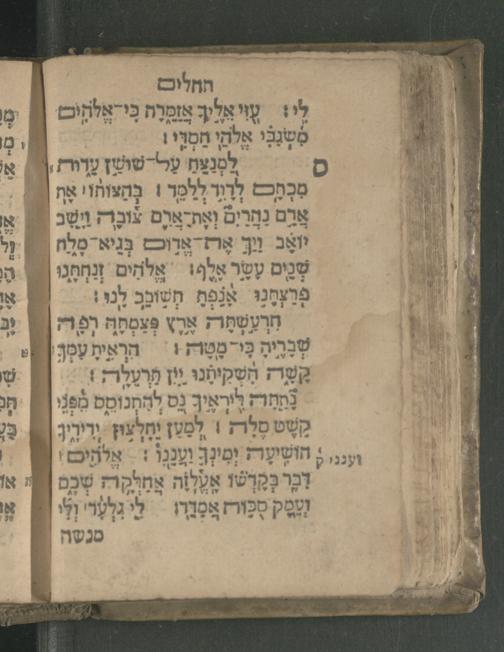 תהלים
לִֽי׃ עֻזִּי אֵלֶיךָ אֲזַמֵּרָה כִּי־אֱלֹהִים
מִשְׂגַּבִּי אֱלֹהֵי חַסְדִּֽי׃
ס לַמְנַצֵּחַ עַל־שׁוּשַׁן עֵדוּת
מִכְתָּם לְדָוִד לְלַמֵּֽד׃ בְּהַצּוֹתוֹ אֶת
אֲרַם נַהֲרַיִם וְאֶת־אֲרַם צוֹבָה וַיָּשָׁב
יוֹאָב וַיַּךְ אֶת־אֱדוֹם בְּגֵיא־מֶלַח
שְׁנֵים עָשָׂר אָֽלֶף׃ אֱלֹהִים זְנַחְתָּנוּ
פְרַצְתָּנוּ אָנַפְתָּ תְּשׁוֹבֵב לָֽנוּ׃
הִרְעַשְׁתָּה אֶרֶץ פְּצַמְתָּהּ רְפָה
שְׁבָרֶיהָ כִי־מָֽטָה׃ הִרְאִיתָ עַמְּךָ
קָשָׁה הִשְׁקִיתָנוּ יַיִן תַּרְעֵלָֽה׃
נָתַתָּה לִּירֵאֶיךָ נֵּס לְהִתְנוֹסֵס מִפְּנֵי
קֹשֶׁט סֶֽלָה׃ לְמַעַן יֵחָלְצוּן יְדִידֶיךָ
הוֹשִׁיעָה יְמִינְךָ וַעֲנֵנֽוּ׃ אֱלֹהִים וענני ק
דִּבֶּר בְּקָדְשׁוֹ אֶעְלֹזָה אֲחַלְּקָה שְׁכֶם
וְעֵמֶק סֻכּוֹת אֲמַדֵּֽד׃ לִי גִלְעָד וְלִי
מנשה